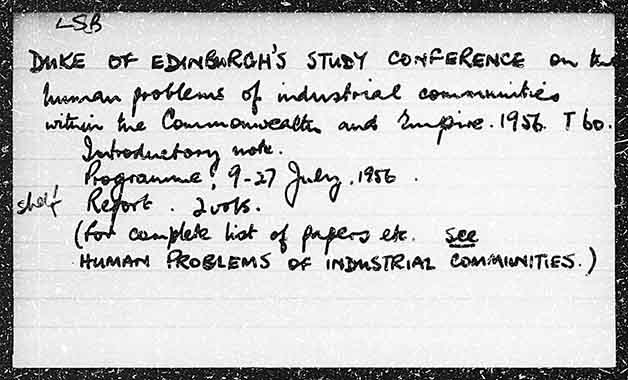 LSB
DUKE OF EDINBURGH'S STUDY CONFERENCE on the
human problems of industrial communities
within the Commonwealth and Empire. 1956. T 60.
Introductory note.
Programme, 9-27 July, 1956.
shelf Report. 2 vols.
(For complete list of papers etc. see
HUMAN PROBLEMS OF INDUSTRIAL COMMUNITIES.)